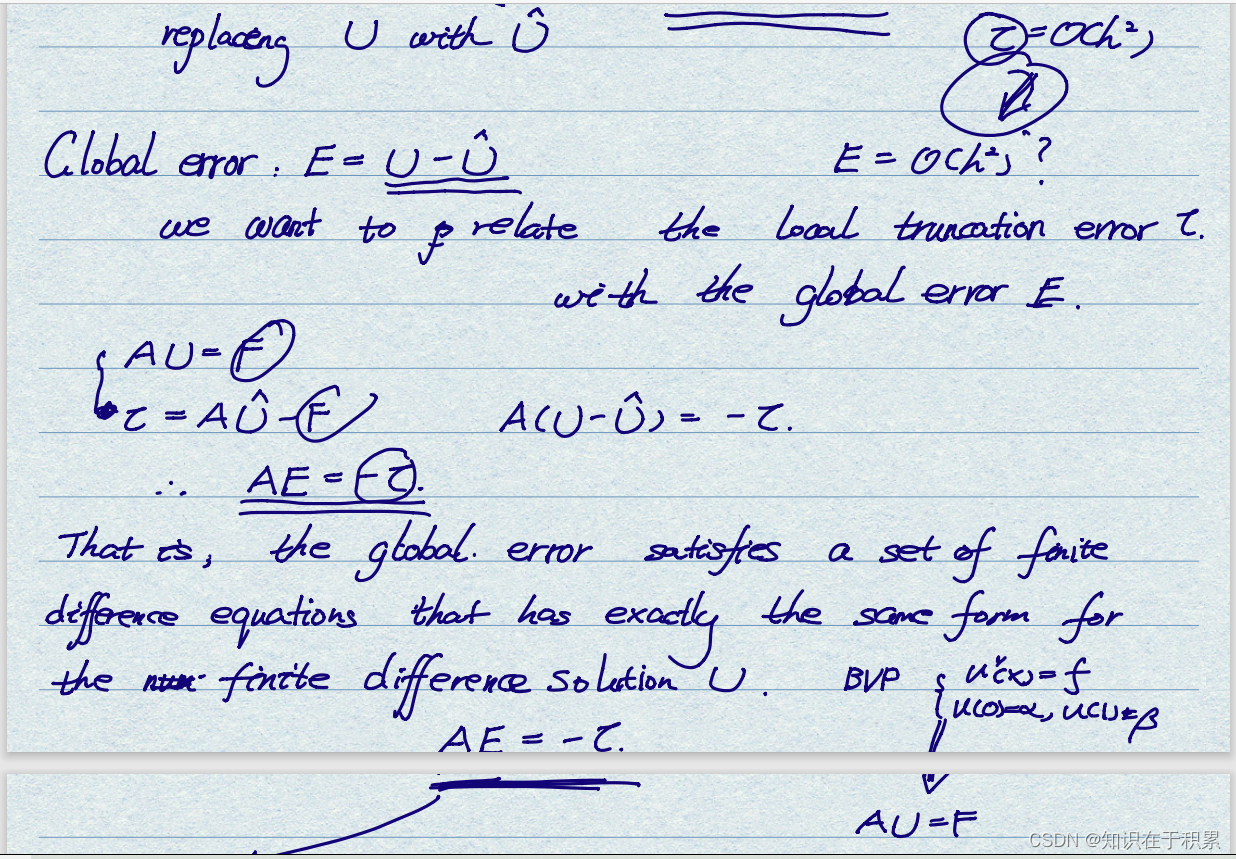 replaceng U with Û
τ = O(h²)
Global error : E = U - Û
E = O(h²) ?
we want to relate the local truncation error τ.
with the global error E.
AU = F
τ = AÛ - F
A(U - Û) = - τ.
∴ AE = -τ.
That is, the global. error satisfies a set of finite
difference equations that has exactly the same form for
the finite difference solution U.
BVP
u''(x) = f
u(0)=α, u(1)=β
AE = - τ.
AU = F
CSDN @知识在于积累